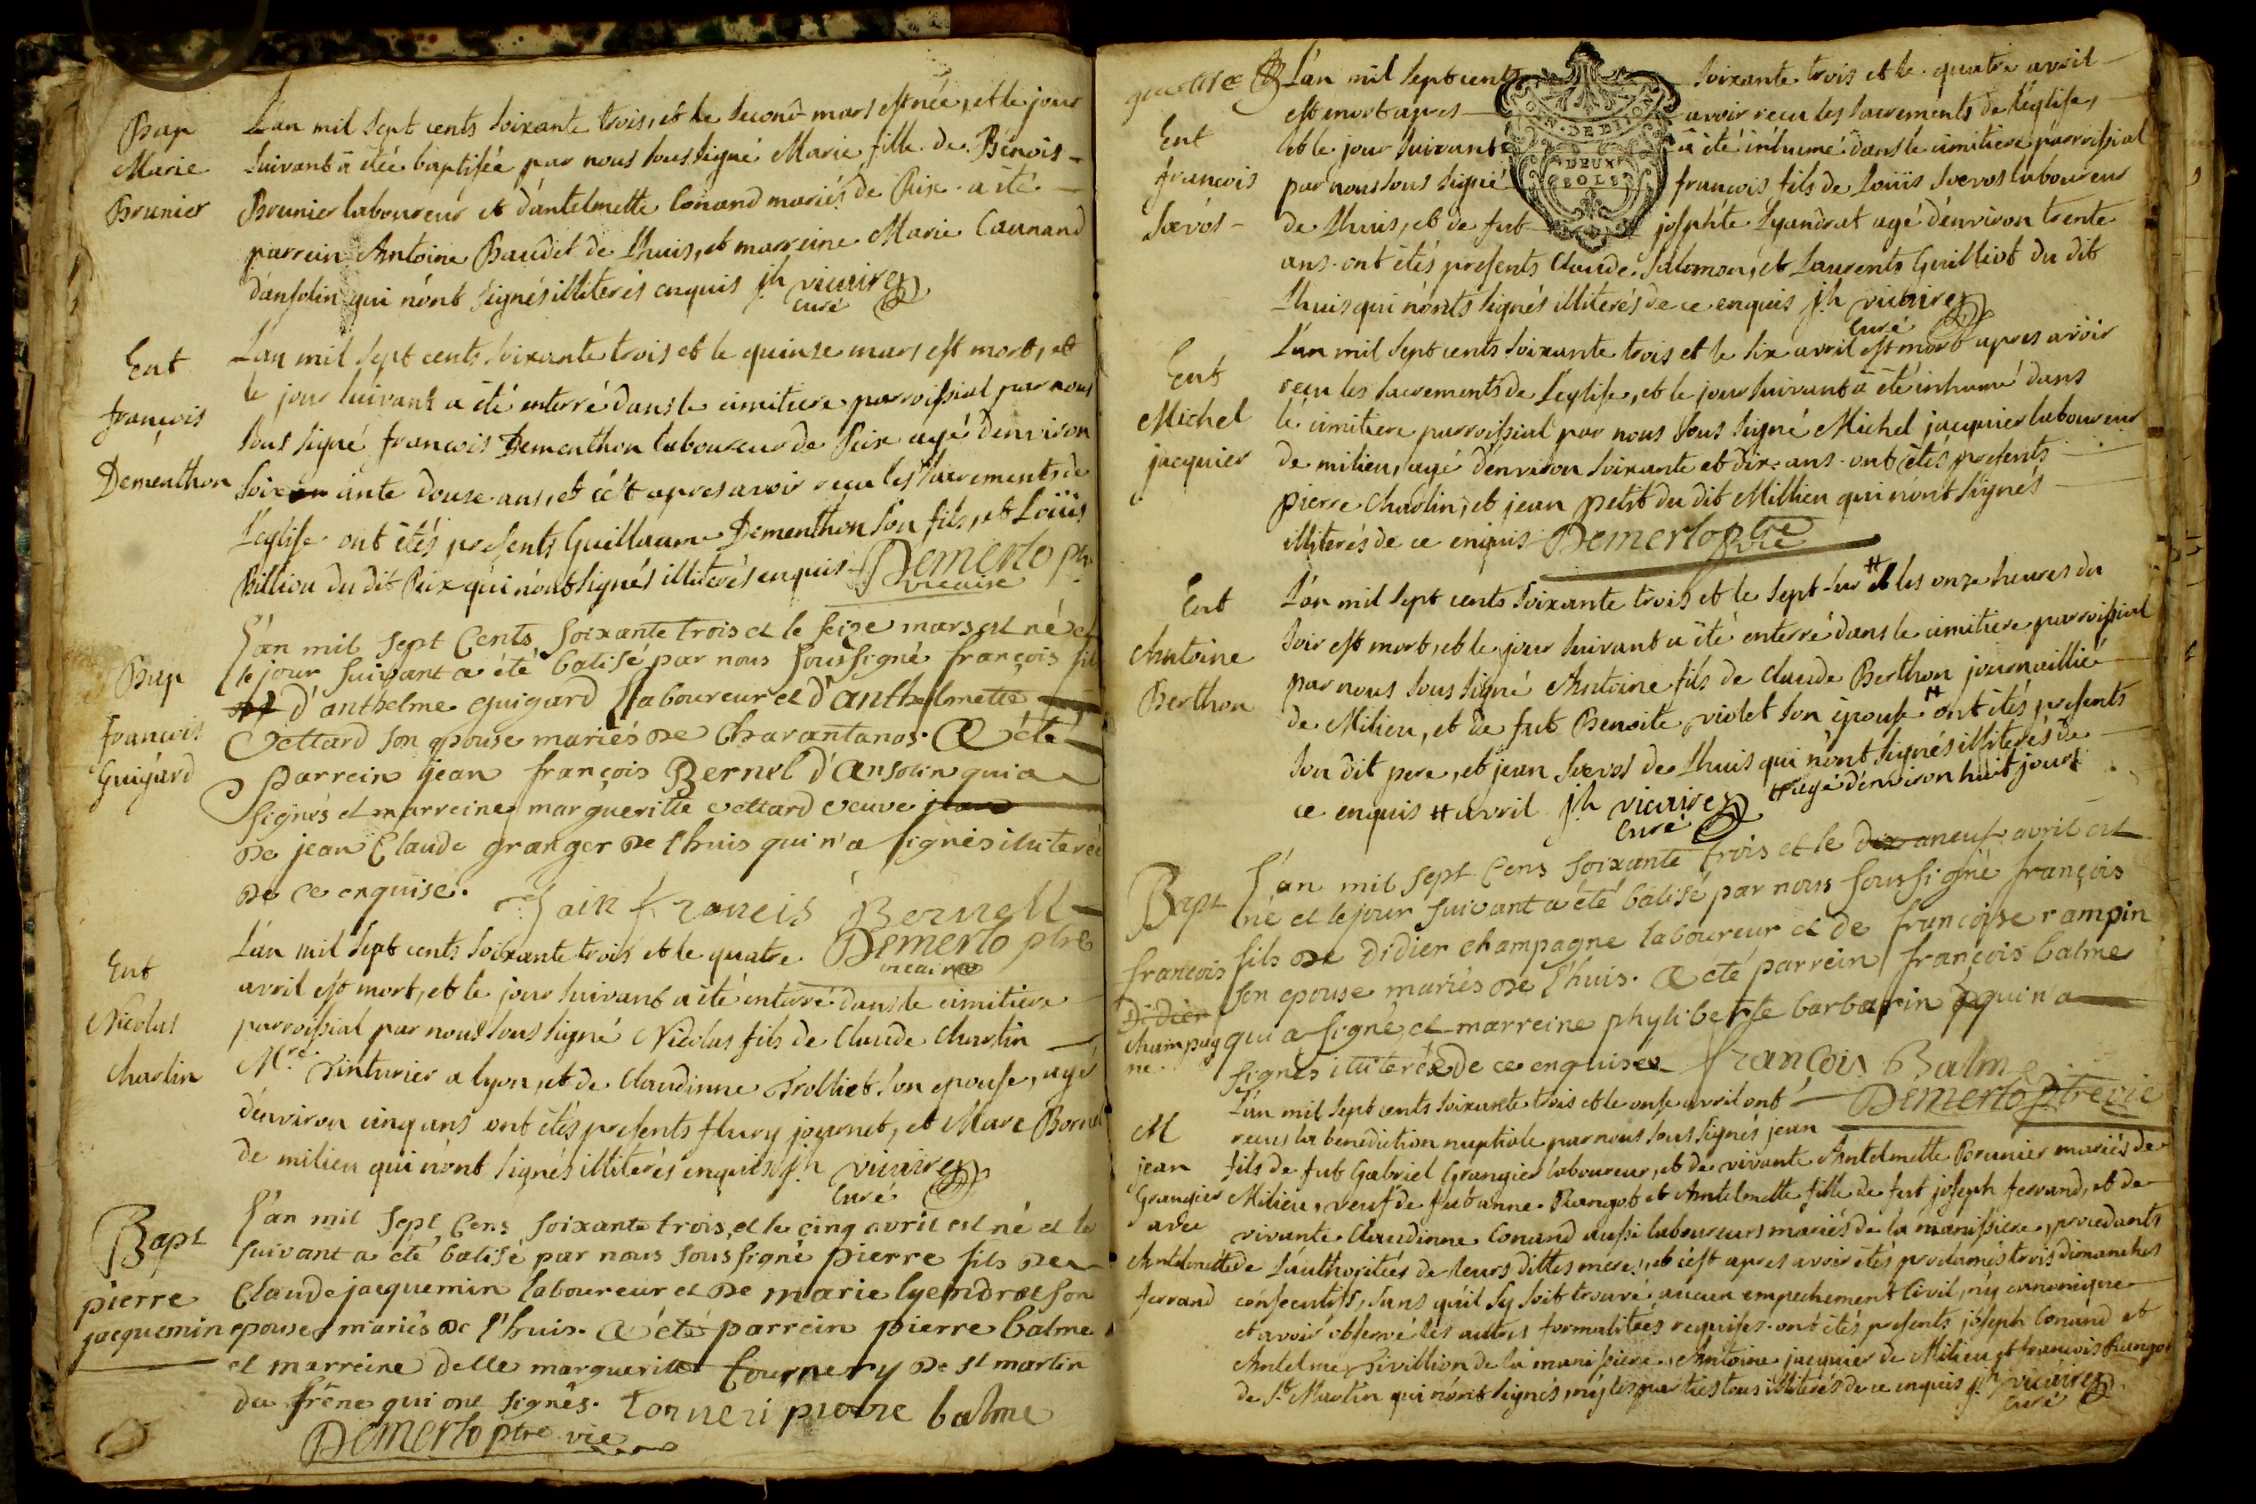 Bap
Marie
Brunier
L'an mil sept cents soixante trois, et le second mars est née, et le jour
suivant a étée baptisée par nous sous signé Marie fille de Benois
Brunier laboureur et d'antelmette Conand mariés de Rix. a été
parrein Antoine Baudet de Lhuis, et marreine Marie Caunand
d'ansolin qui n'ont signés illiterés enquis jh vicaire
curé
Ent
françois
Dementhon
L'an mil sept cents soixante trois et le quinse mars est mort, et
le jour suivant a été enterré dans le cimitiere parroissial par nous
sous signé françois Dementhon laboureur de Rix agé d'environ
soix ante douse ans, et c'est apres avoir reçu les sacrements de
L'eglise ont étés presents Guillaume Dementhon son fils, et Loüis
Billion du dit Rix qui n'ont signés illiterés enquis Demerlo ptre
vicaire
Bap
françois
Guigard
L'an mil sept Cents soixante trois et le seize mars est né et
le jour suivant a été batisé par nous soussigné françois fils
d'anthelme guigard laboureur et d'anthelmette
Vettard son epouse mariés de Charantanos. A été
parrein jean françois Bernel d'Ansolin qui a
signés et marreine margueritte vettard veuve jean
de jean Claude granger de Lhuis qui n'a signés illiterée
de ce enquise.
Jain francis Bernell
Demerlo ptre
vicaire
Ent
Nicolas
Charlin
L'an mil sept cents soixante trois et le quatre
avril est mort, et le jour suivant a été enterré dans le cimitiere
parroissial par nous sous signé Nicolas fils de Claude Charlin
Mre Tinturier a lyon, et de Claudinne Trolliet son epouse, agé
d'environ cinq ans ont étés presents flury journet, et Marc Bornet
de milieu qui n'ont signés illiterés enquis jh vicaire
curé
Bapt
pierre
jacquemin
L'an mil sept Cens soixante trois, et le cinq avril est né et le
suivant a été batisé par nous soussigné pierre fils de
Claude jacquemin laboureur et de marie lyendrat son
epouse mariés de l'huis. A été parrein pierre balme
et marreine delle margueritte fournery de st martin
du frêne qui ont signés. torneri pierre balme
Demerlo ptre vic
quatre
Ent
françois
Soevos
L'an mil sept cents soixante trois et le quatre avril
est mort apres avoir reçu les sacrements de l'eglise,
et le jour suivant a été inhumé dans le cimitiere parroissial
par nous sous signé françois fils de Loüis Soevos laboureur
de Lhuis, et de fut josephte Lyandrat agé d'environ trente
ans. ont étés presents Claude Salomon, et Laurents Guilliot du dit
Lhuis qui n'onts signés illiterés de ce enquis jh vicaire
curé
DEUX
SOLS
Ent
Michel
jacquier
L'an mil sept cents soixante trois et le six avril est mort apres avoir
reçu les sacrements de L'eglise, et le jour suivant a été inhumé dans
le cimitiere parroissial par nous sous signé Michel jacquier laboureur
de milieu, agé d'environ soixante et dix ans. ont étés presents
pierre Charlin, et jean petit du dit Millieu qui n'ont signés
illiterés de ce enquis Demerlo ptre vic
Ent
Antoine
Berthon
L'an mil sept cents soixante trois et le sept sur # les onze heures du
soir est mort, et le jour suivant a été enterré dans le cimitiere parroissial
par nous sous signé Antoine fils de Claude Berthon journaillié
de Milieu, et de fut Benoite violet son epouse # ont étés presents
son dit pere, et jean Soevos de Lhuis qui n'ont signés illiterés de
ce enquis # avril jh vicaire # agé d'environ huit jours
curé
Bapt
françois
Didier
Champag
ne.
L'an mil sept Cens soixante trois et le dix aneuf avril est
né et le jour suivant a été batisé par nous soussigné françois
fils de Didier champagne laboureur et de françoise rampin
son epouse mariés de l'huis. A été parrein françois balme
qui a signé, et marreine phyliberte barbarin qui n'a
signés illiterée de ce enquise françois Balme
Demerlo ptre vic
M
jean
Grangier
avec
Antelmette
ferrand
L'an mil sept cents soixante trois et le onse avril ont
reçus la benediction nuptiale par nous sous signés jean
fils de fut Gabriel Grangier laboureur, et de vivante Antelmette Brunier mariés de
Milieu, veuf de fut anne Rangot et Antelmette fille de fut joseph ferrand, et de
vivante Claudinne Conand aussi laboureurs mariés de la manissiere, procedants
de L'authoritées de leurs dittes meres, et c'est apres avoir étés proclamés trois dimanches
consecutifs, sans qu'il sy soit trouvé aucun empechement Civil, ny canonique
et avoir observé les autres formalitées requises. ont étés presents joseph Conand et
Antelme Sivillion de la manissiere, Antoine jacquier de Milieu et françois Rangot
de St Martin qui n'ont signés, ny les parties tous illiterés de ce enquis jh vicaire
curé